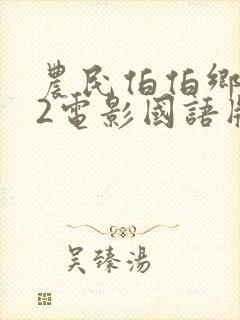 農民伯伯鄉
2電影國語版
吴臻湯